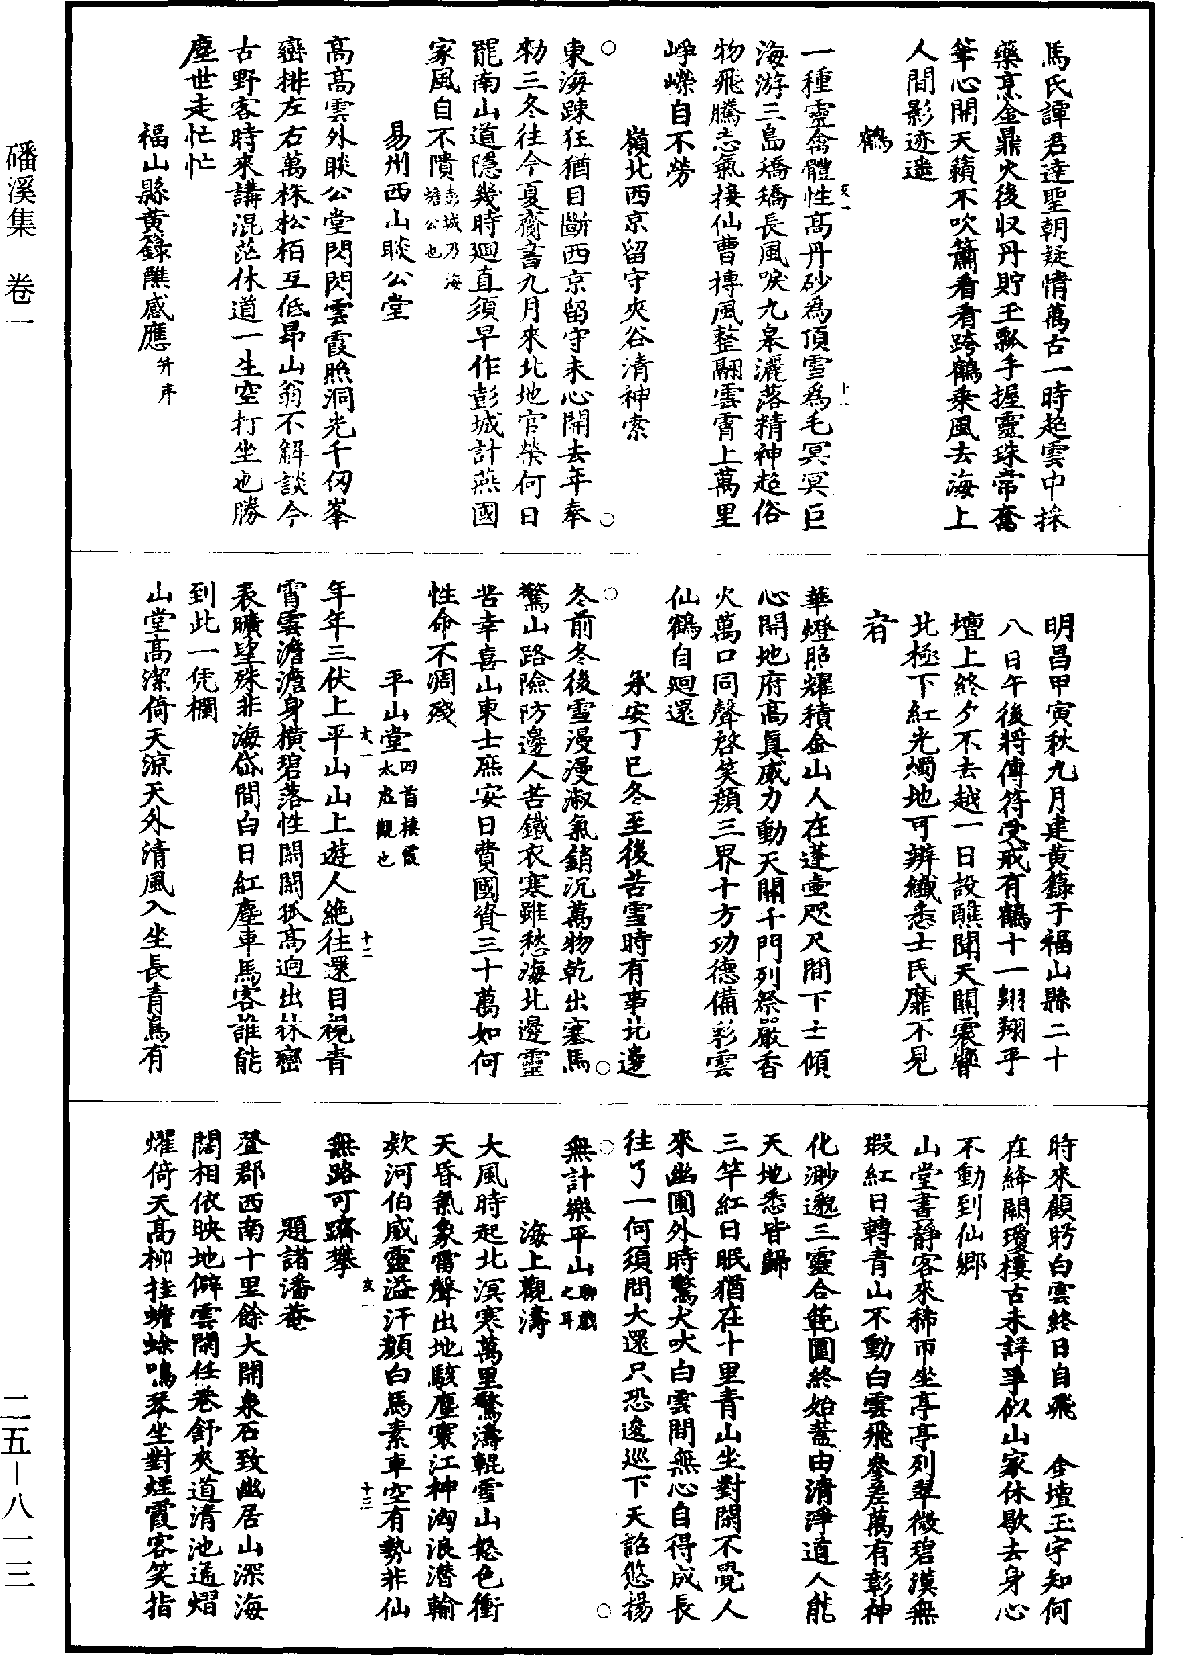 磻溪集　卷一
馬氏譚君達聖朝疑情萬古一時超雲中採
藥烹金鼎火後収丹貯玉瓢手握靈珠常奮
筆心開天籟不吹簫看看跨鶴乗風去海上
人間影迹遙
鶴
一種靈禽體性高丹砂爲頂雪爲毛冥冥巨
海游三島矯矯長風唳九皋灑落精神超俗
物飛騰志氣接仙曹摶風整翮雲霄上萬里
崢嶸自不勞
嶺北西京留守夾谷清神索
東海踈狂猶目斷西京留守未心開去年奉
勑三冬往今夏齎書九月來北地官榮何日
罷南山道隱幾時廻直須早作彭城計燕國
家風自不隤彭城乃海蟾公也
易州西山睒公堂
高高雲外睒公堂閃閃雲霞照洞光千仭峯
巒排左右萬株松栢互低昂山翁不解談今
古野客時來講混茫休道一生空打坐也勝
塵世走忙忙
福山縣黄籙醮感應并序
明昌甲寅秋九月建黄籙于福山縣二十
八日午後將傳符受戒有鶴十一翺翔乎
壇上終夕不去越一日設醮聞天關震響
北極下紅光燭地可辨纖悉士氏靡不見
者
華燈照耀積金山人在蓬壷咫尺間下士傾
心開地府高眞威力動天關千門列祭嚴香
火萬口同聲啓笑顔三界十方功德備彩雲
仙鶴自廻還
承安丁巳冬至後苦雪時有事北邊
冬前冬後雪漫漫淑氣銷沉萬物乾出塞馬
驚山路險防邊人苦鐵衣寒雖愁海北邊靈
苦幸喜山東士庶安日費國資三十萬如何
性命不凋殘
平山堂四首棲霞太虚觀也
年年三伏上平山山上遊人絶往還目視青
霄雲澹澹身横碧落性閑閑孤高逈出林巒
表曠望殊非海岱間白日紅塵車馬客誰能
到此一凭欄
山堂高潔倚天涼天外清風入坐長青鳥有
時來顧眄白雲終日自飛　金壇玉宇知何
在絳闕瓊樓古未詳爭似山家休歇去身心
不動到仙鄉
山堂書靜客來稀帀坐亭亭列翠微碧漢無
瑕紅日轉青山不動白雲飛參差萬有彰神
化渺邈三靈合範圍終始蓋由清淨道人能
天地悉皆歸
三竿紅日眠猶在十里青山坐對閑不覺人
來幽圃外時驚犬吠白雲間無心自得成長
往了一何須問大還只恐逡巡下天詔悠揚
無計樂平山聊戲之耳
海上觀濤
大風時起北溟寒萬里驚濤輥雪山怒色衝
天昏氣象雷聲出地駭塵寰江神洶浪潛輸
欵河伯威靈溢汗顔白馬素車空有勢非仙
無路可躋攀
題諸潘菴
登郡西南十里餘大開泉石致幽居山深海
闊相依映地僻雲閑任卷舒夾道清池通熠
燿倚天高柳挂蟾蜍鳴琴坐對煙霞客笑指
二五－八一三